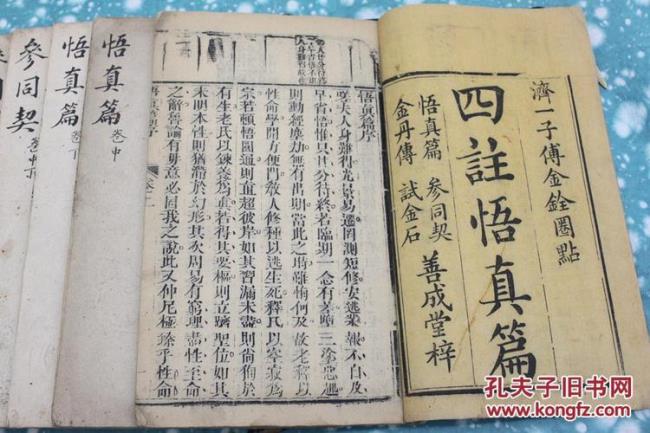 濟一子傅金銓圈點
四註悟真篇
悟真篇 參同契
金丹傳 試金石
善成堂梓
悟真篇序
嗟夫人身難得光景易遷罔測短修安逃業報不自及
早省悟惟只甘分待終若臨期一念有差墮三塗惡趣
則動經塵劫無有出期當此之時雖悔何及故老釋以
性命學開方便門敎人修種以逃生死釋氏以空寂爲
宗若頓悟圓通則直超彼岸如其習漏未盡則尚徇於
有生老氏以鍊養爲真若得其要樞則立躋聖位如其
未明本性則猶滯於幻形其次周易有窮理盡性至命
之辭魯論有毋意必固我之說此又仲尼極臻乎性命
悟真篇 卷中
悟真篇 卷下
參同契
孔夫子旧书网
www.kongfz.com